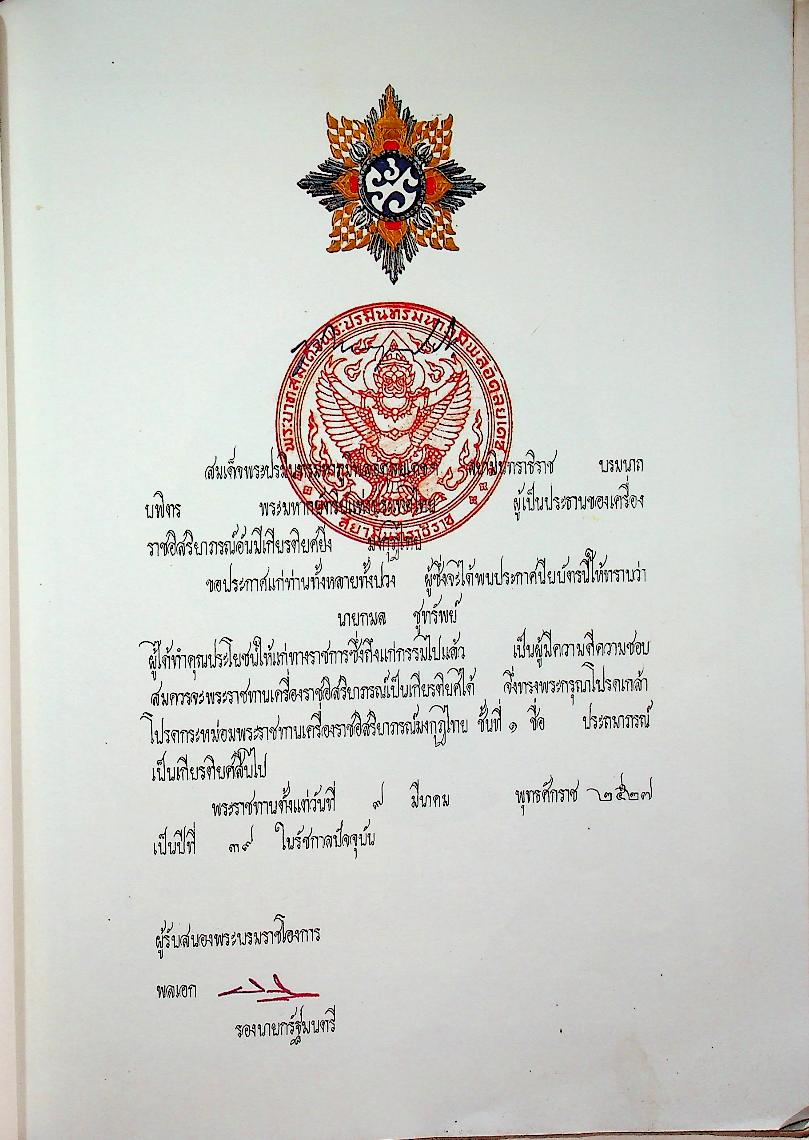 พระบาทสมเด็จพระปรมินทรมหาภูมิพลอดุลยเดช
สยามินทราธิราช
สมเด็จพระปรมินทรมหาภูมิพลอดุลยเดช สยามินทราธิราช บรมนาถ
บพิตร พระมหากษัตริย์แห่งประเทศไทย ผู้เป็นประธานของเครื่อง
ราชอิสริยาภรณ์อันมีเกียรติยศยิ่ง มงกุฎไทย
ขอประกาศแก่ท่านทั้งหลายทั้งปวง ผู้ซึ่งจะได้พบประกาศนียบัตรนี้ให้ทราบว่า
นายกมล ชูทรัพย์
ผู้ได้ทำคุณประโยชน์ให้แก่ทางราชการซึ่งถึงแก่กรรมไปแล้ว เป็นผู้มีความดีความชอบ
สมควรจะพระราชทานเครื่องราชอิสริยาภรณ์เป็นเกียรติยศได้ จึ่งทรงพระกรุณาโปรดเกล้า
โปรดกระหม่อมพระราชทานเครื่องราชอิสริยาภรณ์มงกุฎไทย ชั้นที่ ๑ ชื่อ ประถมาภรณ์
เป็นเกียรติยศสืบไป
พระราชทานตั้งแต่วันที่ ๙ มีนาคม พุทธศักราช ๒๕๒๗
เป็นปีที่ ๓๙ ในรัชกาลปัจจุบัน
ผู้รับสนองพระบรมราชโองการ
พลเอก
รองนายกรัฐมนตรี